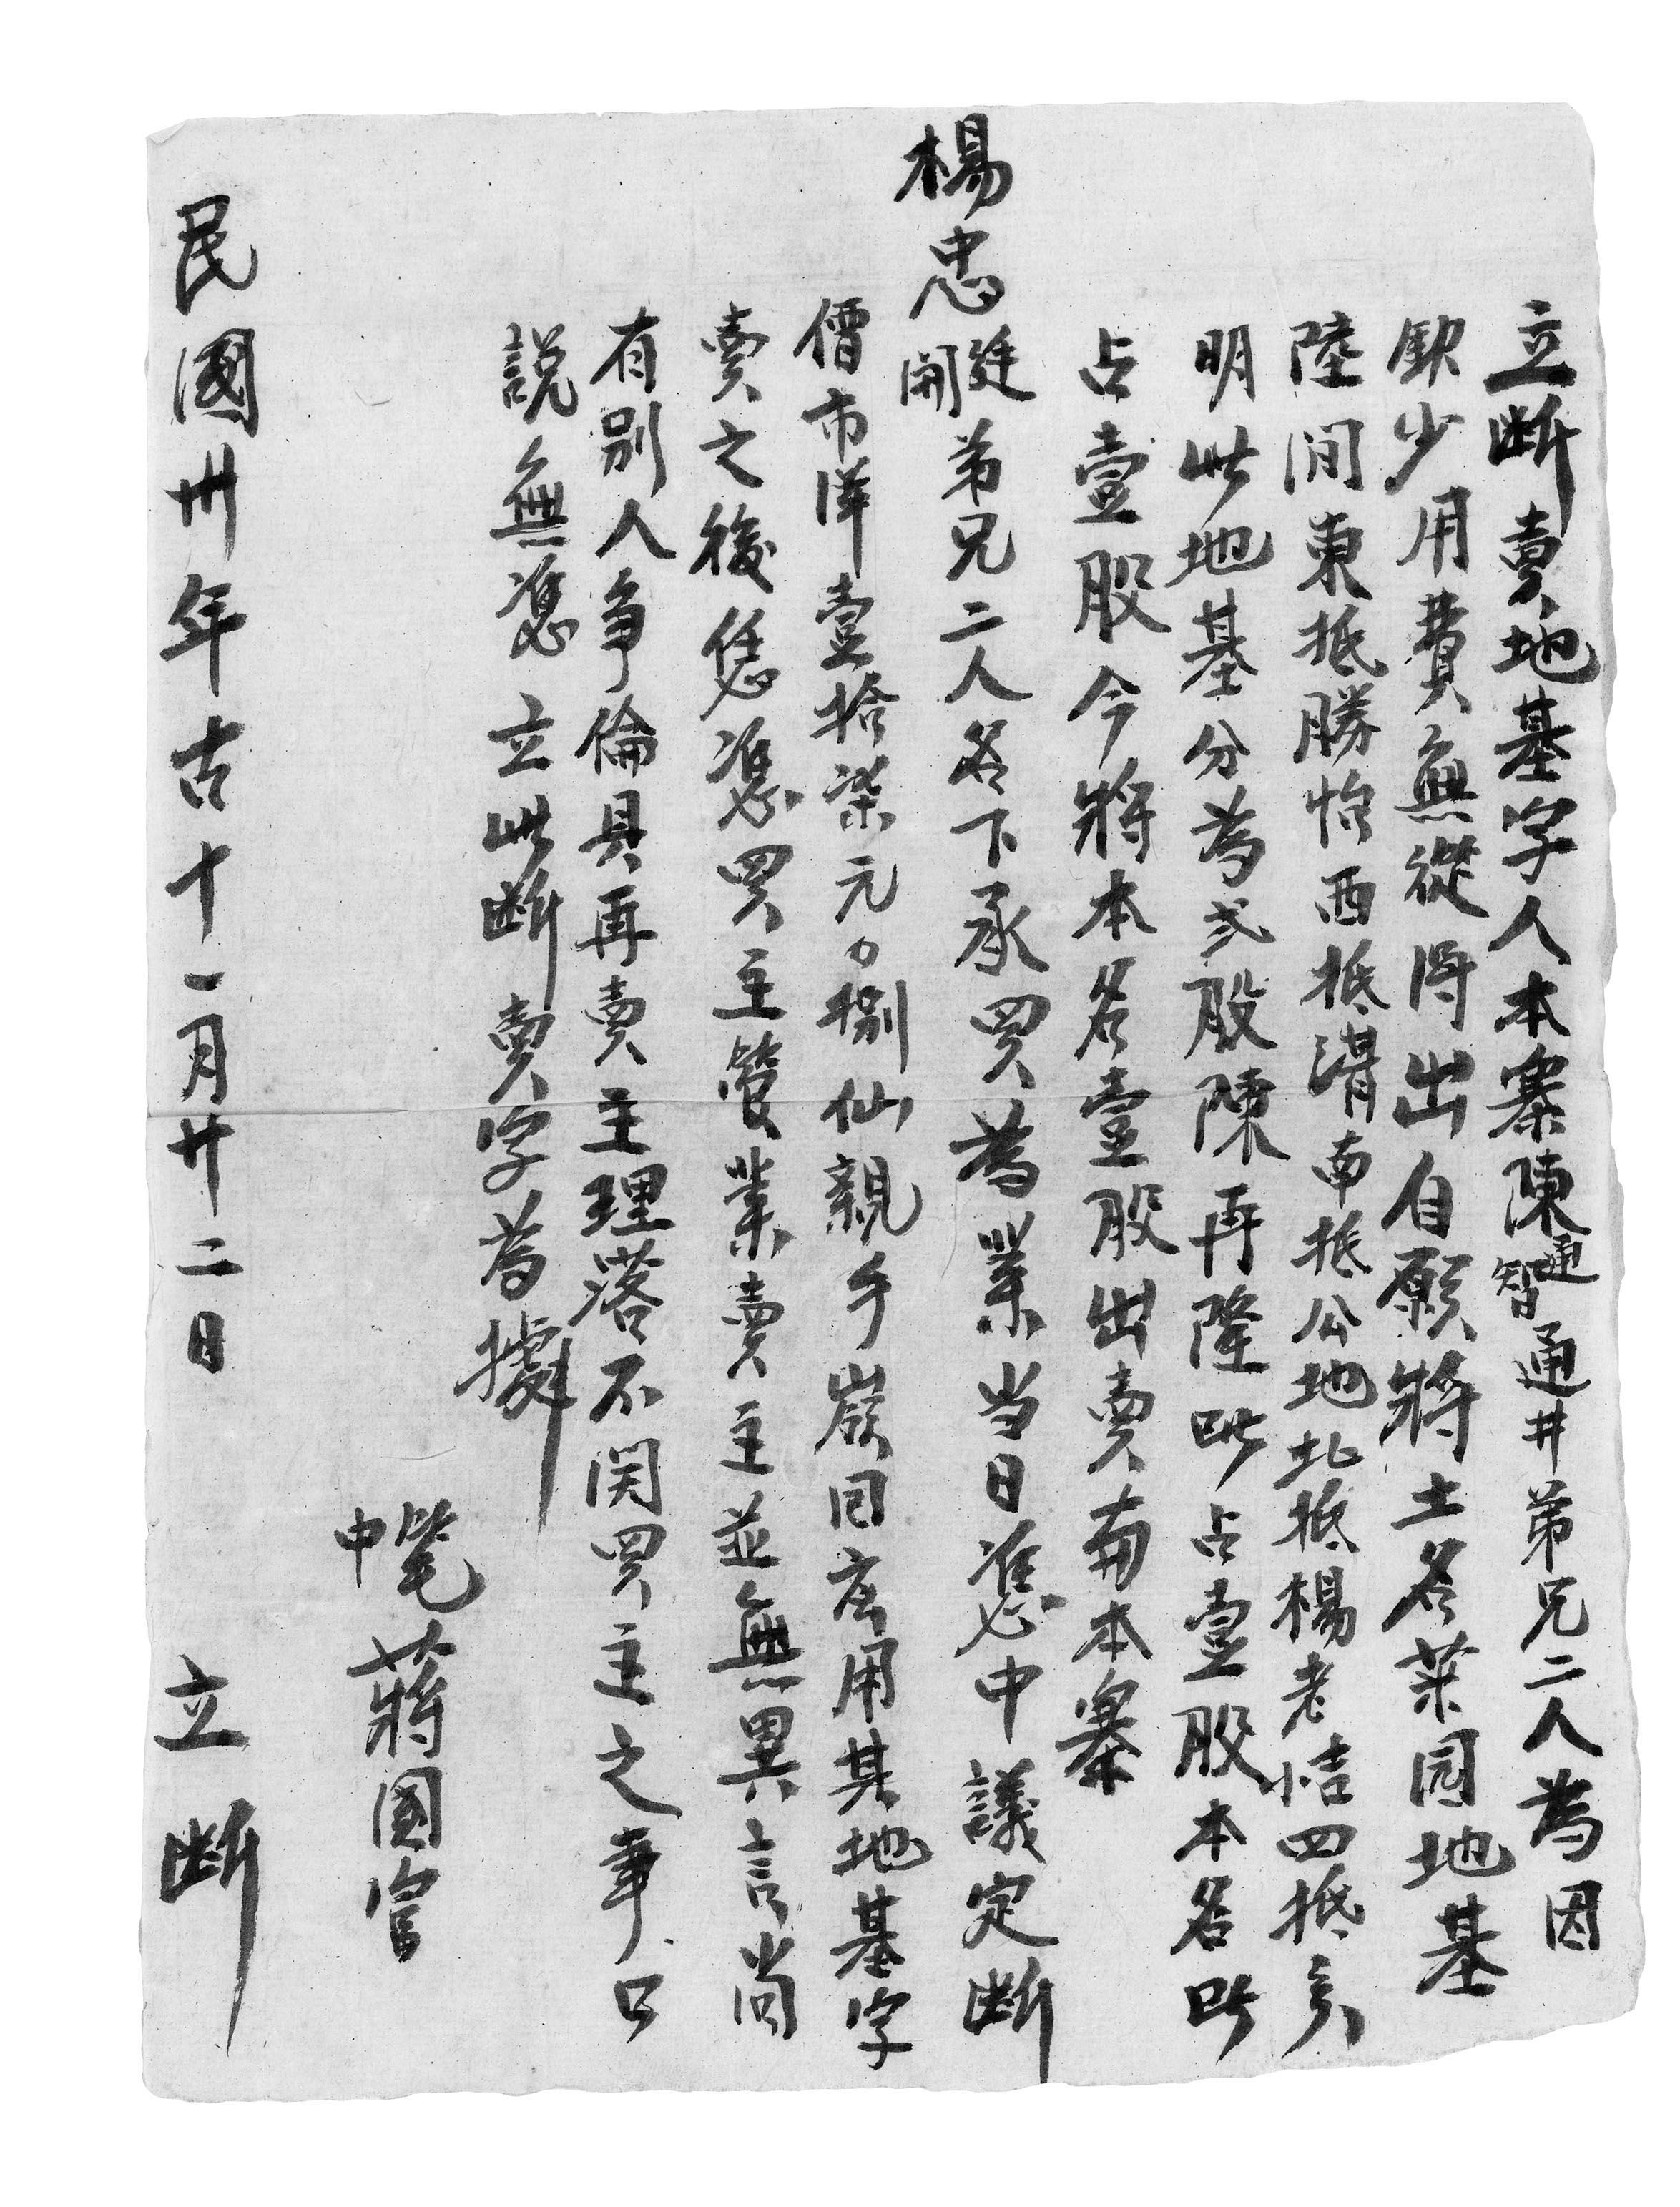 立断賣地基字人本寨陳通智通井弟兄二人為因
欽少用費無從得出自願將土名菜园地基
陸間東抵勝怡西抵溝南抵公地北抵楊老桔四抵分
明此地基分為弍股陳再隆此占壹股本名此
占壹股今將本名壹股出賣與本寨
楊忠廷開弟兄二人名下承買為業当日憑中議定断
價市洋壹拾柒元〇捌仙親手嶺囘應用其地基字
賣之後恁憑買主管業賣主並無異言尚
有別人争倫具再賣主理落不関買主之事口
説無憑立此断賣字為據
中筆蔣國富
民國卅年古十一月廿二日 立断